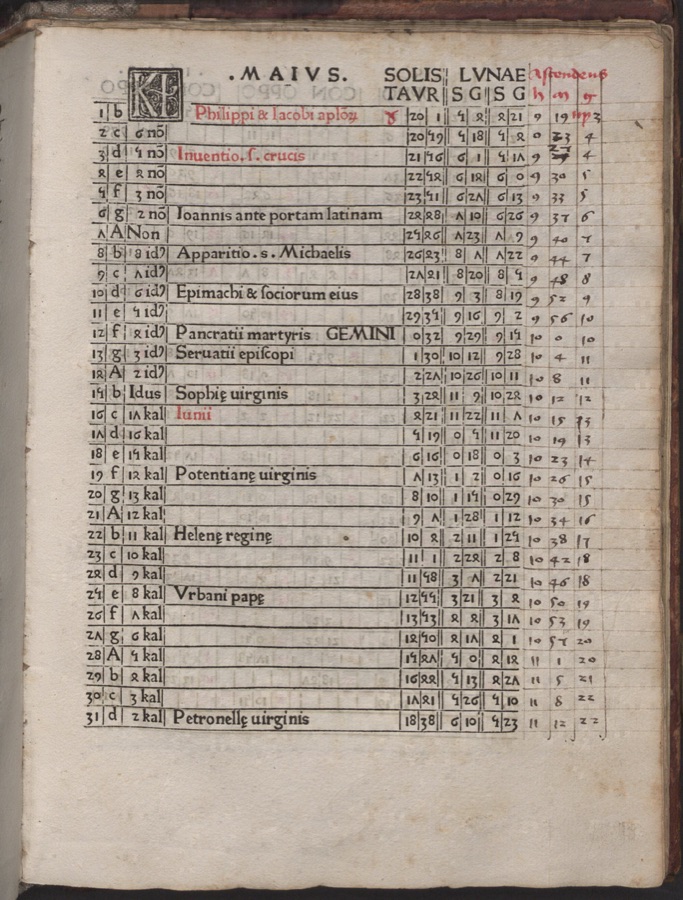 KL .MAIVS. SOLIS LVNAE Ascendens
TAVR S G S G h m g
1 b Philippi & Iacobi aploꝝ ♉ 20 1 5 4 4 21 9 19 ♍ 3
2 c 6 nō 20 59 5 18 5 4 9 23 4
3 d 5 nō Inuentio . s. crucis 21 56 6 1 5 17 9 27 4
4 e 4 nō 22 54 6 14 6 0 9 30 5
5 f 3 nō 23 51 6 27 6 13 9 33 5
6 g 2 nō Ioannis ante portam latinam 24 48 7 10 6 26 9 37 6
7 A Non 25 46 7 23 7 9 9 40 7
8 b 8 idꝰ Apparitio . s . Michaelis 26 43 8 7 7 22 9 44 7
9 c 7 idꝰ 27 41 8 20 8 5 9 48 8
10 d 6 idꝰ Epimachi & sociorum eius 28 38 9 3 8 19 9 52 9
11 e 5 idꝰ 29 35 9 16 9 2 9 56 10
12 f 4 idꝰ Pancratii martyris GEMINI 0 32 9 29 9 15 10 0 10
13 g 3 idꝰ Seruatii episcopi 1 30 10 12 9 28 10 4 11
14 A 2 idꝰ 2 27 10 26 10 11 10 8 11
15 b Idus Sophię uirginis 3 24 11 9 10 24 10 12 12
16 c 17 kal Iunii 4 21 11 22 11 7 10 15 13
17 d 16 kal 5 19 0 5 11 20 10 19 13
18 e 15 kal 6 16 0 18 0 3 10 23 14
19 f 14 kal Potentianę uirginis 7 13 1 2 0 16 10 26 15
20 g 13 kal 8 10 1 15 0 29 10 30 15
21 A 12 kal 9 7 1 28 1 12 10 34 16
22 b 11 kal Helenę reginę 10 4 2 11 1 25 10 38 17
23 c 10 kal 11 1 2 24 2 8 10 42 18
24 d 9 kal 11 58 3 7 2 21 10 46 18
25 e 8 kal Vrbani papę 12 55 3 21 3 4 10 50 19
26 f 7 kal 13 53 4 4 3 17 10 53 19
27 g 6 kal 14 50 4 17 4 1 10 57 20
28 A 5 kal 15 47 5 0 4 14 11 1 20
29 b 4 kal 16 44 5 13 4 27 11 5 21
30 c 3 kal 17 41 5 26 5 10 11 8 22
31 d 2 kal Petronellę uirginis 18 38 6 10 5 23 11 12 22